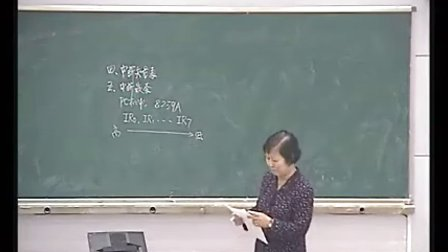 四、中断向量表
五、中断嵌套
PC机中: 8259A
IR0, IR1 --- IR7
高 → 低